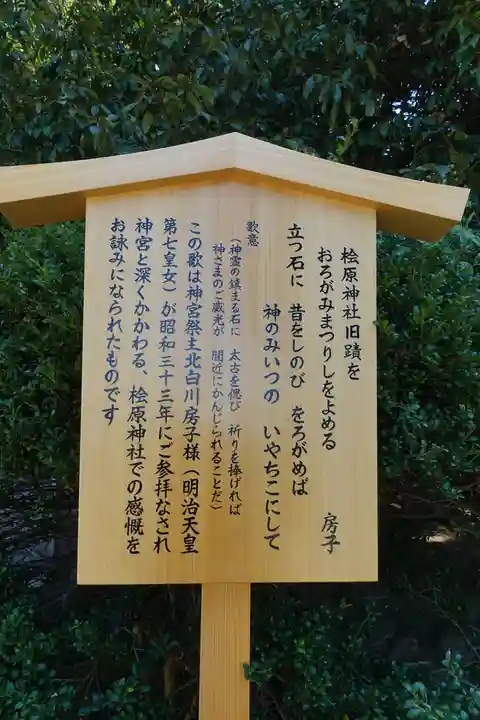 桧原神社旧蹟を
おろがみまつりしをよめる
房子
立つ石に 昔をしのび をろがめば
神のみいつの いやちこにして
歌意
(神霊の鎮まる石に 太古を偲び 祈りを捧げれば
神さまのご威光が 間近にかんじられることだ)
この歌は神宮祭主北白川房子様(明治天皇
第七皇女)が昭和三十三年にご参拝なされ
神宮と深くかかわる、桧原神社での感慨を
お詠みになられたものです